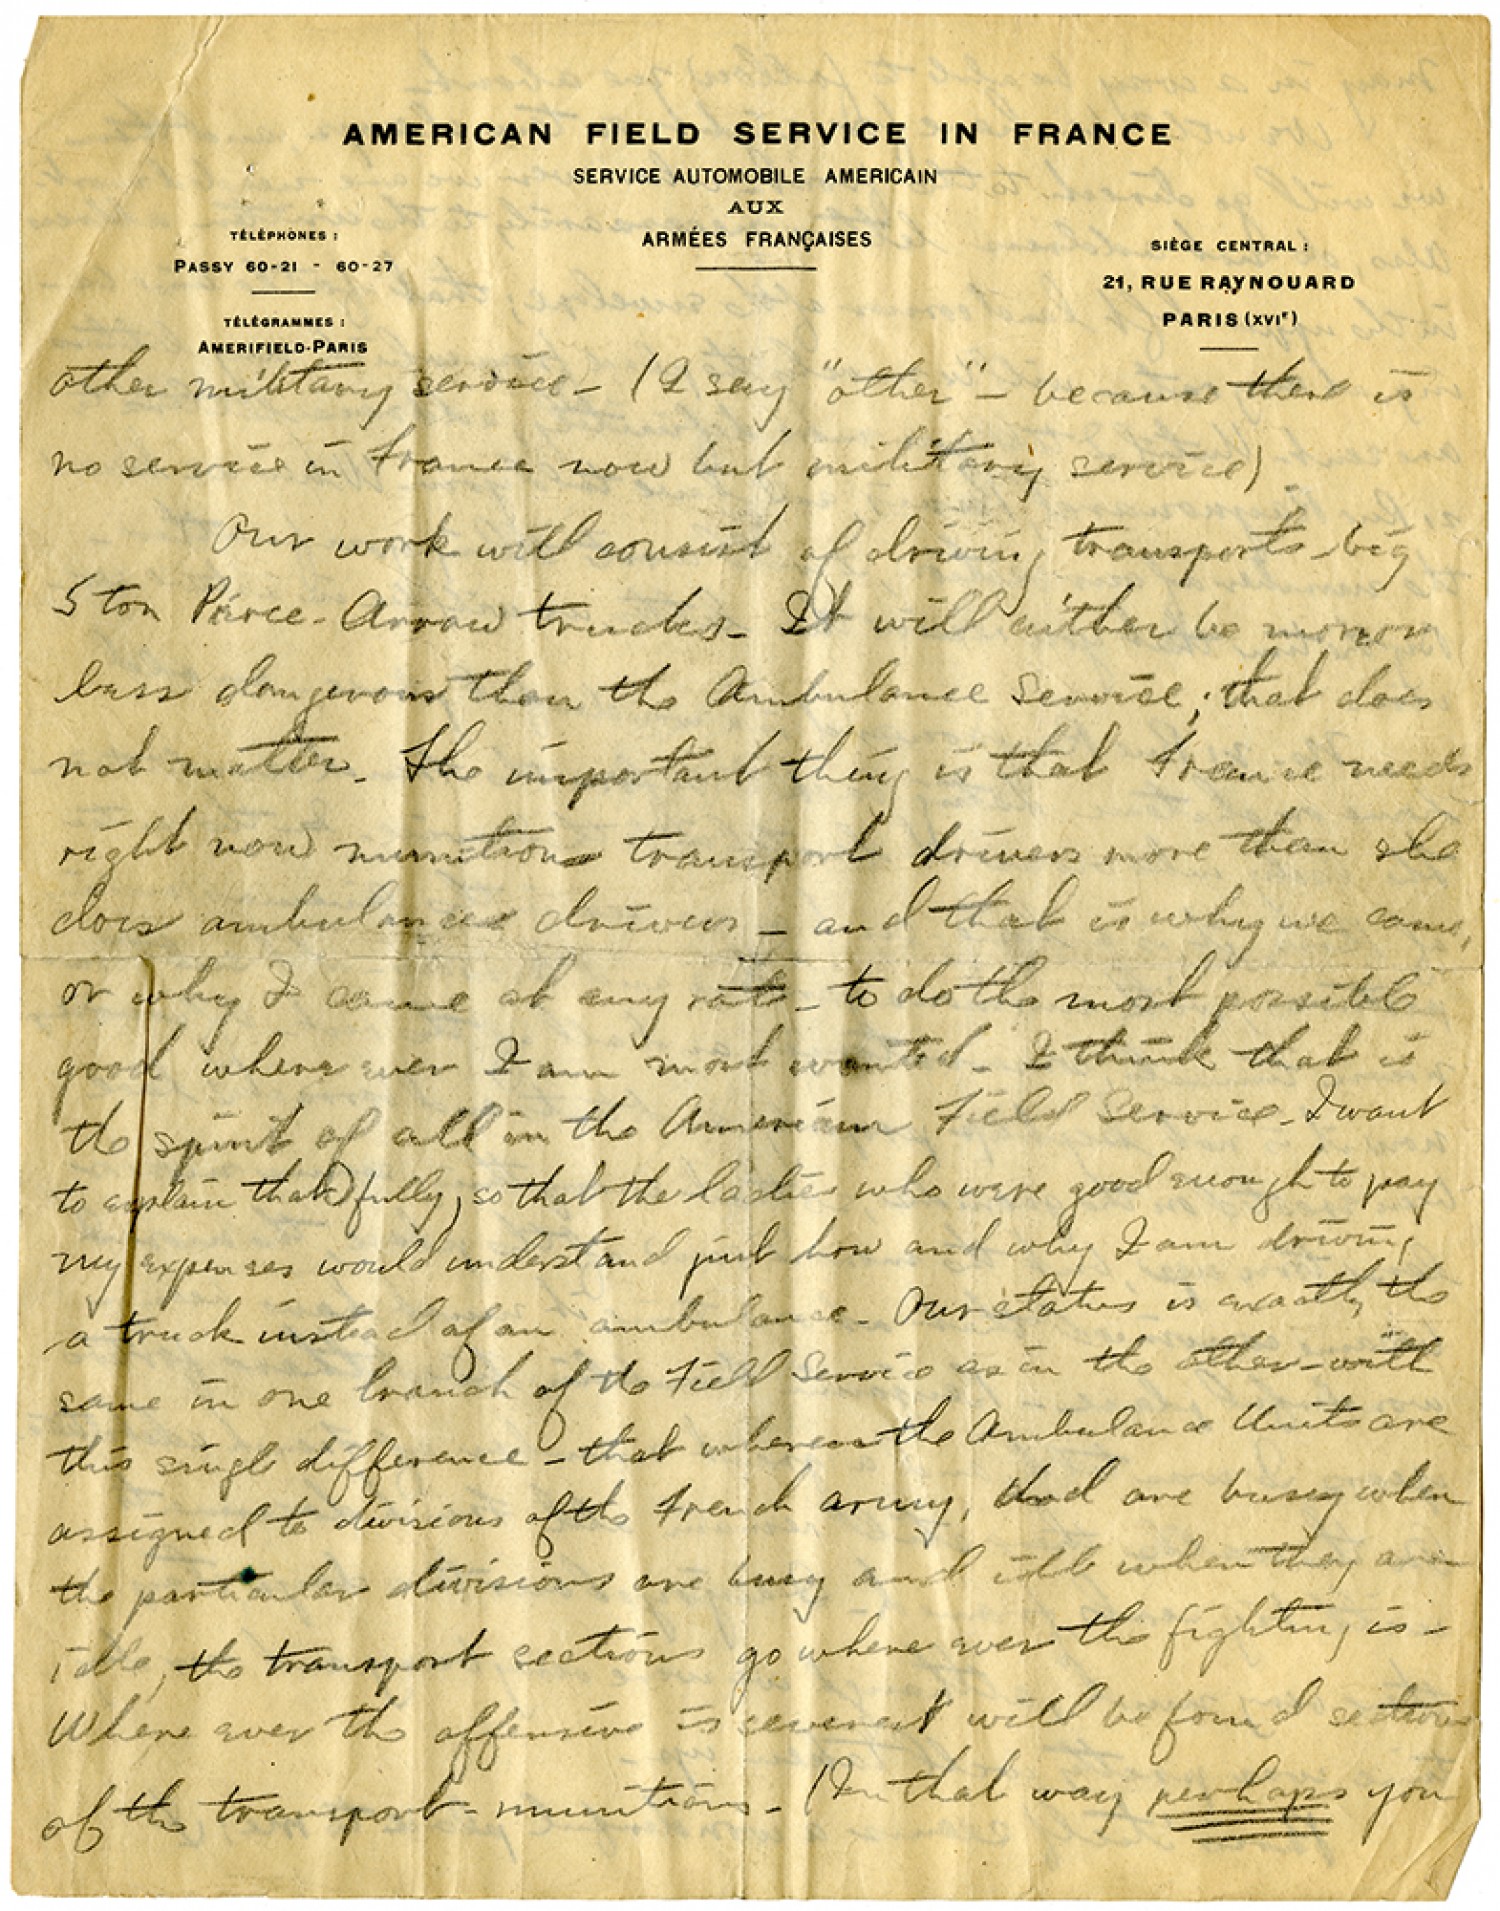 AMERICAN FIELD SERVICE IN FRANCE
SERVICE AUTOMOBILE AMERICAIN
AUX
ARMÉES FRANÇAISES
TÉLÉPHONES :
PASSY 60-21 - 60-27
TÉLÉGRAMMES :
AMERIFIELD-PARIS
SIÈGE CENTRAL :
21, RUE RAYNOUARD
PARIS (XVIe)
other military service - (I say "other" - because there is
no service in France now but military service)
Our work will consist of driving transports - big
5 ton Pierce-Arrow trucks - It will either be more or
less dangerous than the Ambulance Service; that does
not matter. The important thing is that France needs
right now munitions transport drivers more than she
does ambulance drivers - and that is why we came,
or why I came at any rate - to do the most possible
good where ever I am most wanted - I think that is
the spirit of all in the American Field Service - I want
to explain that fully, so that the ladies who were good enough to pay
my expenses would understand just how and why I am driving
a truck instead of an ambulance - Our status is exactly the
same in one branch of the Field Service as in the other - with
this single difference - that whereas the Ambulance Units are
assigned to divisions of the French army, and are busy when
the particular divisions are busy and idle when they are
idle, the transport sections go where ever the fighting is -
Where ever the offensive is severest will be found sections
of the transport - munitions - (In that way perhaps you